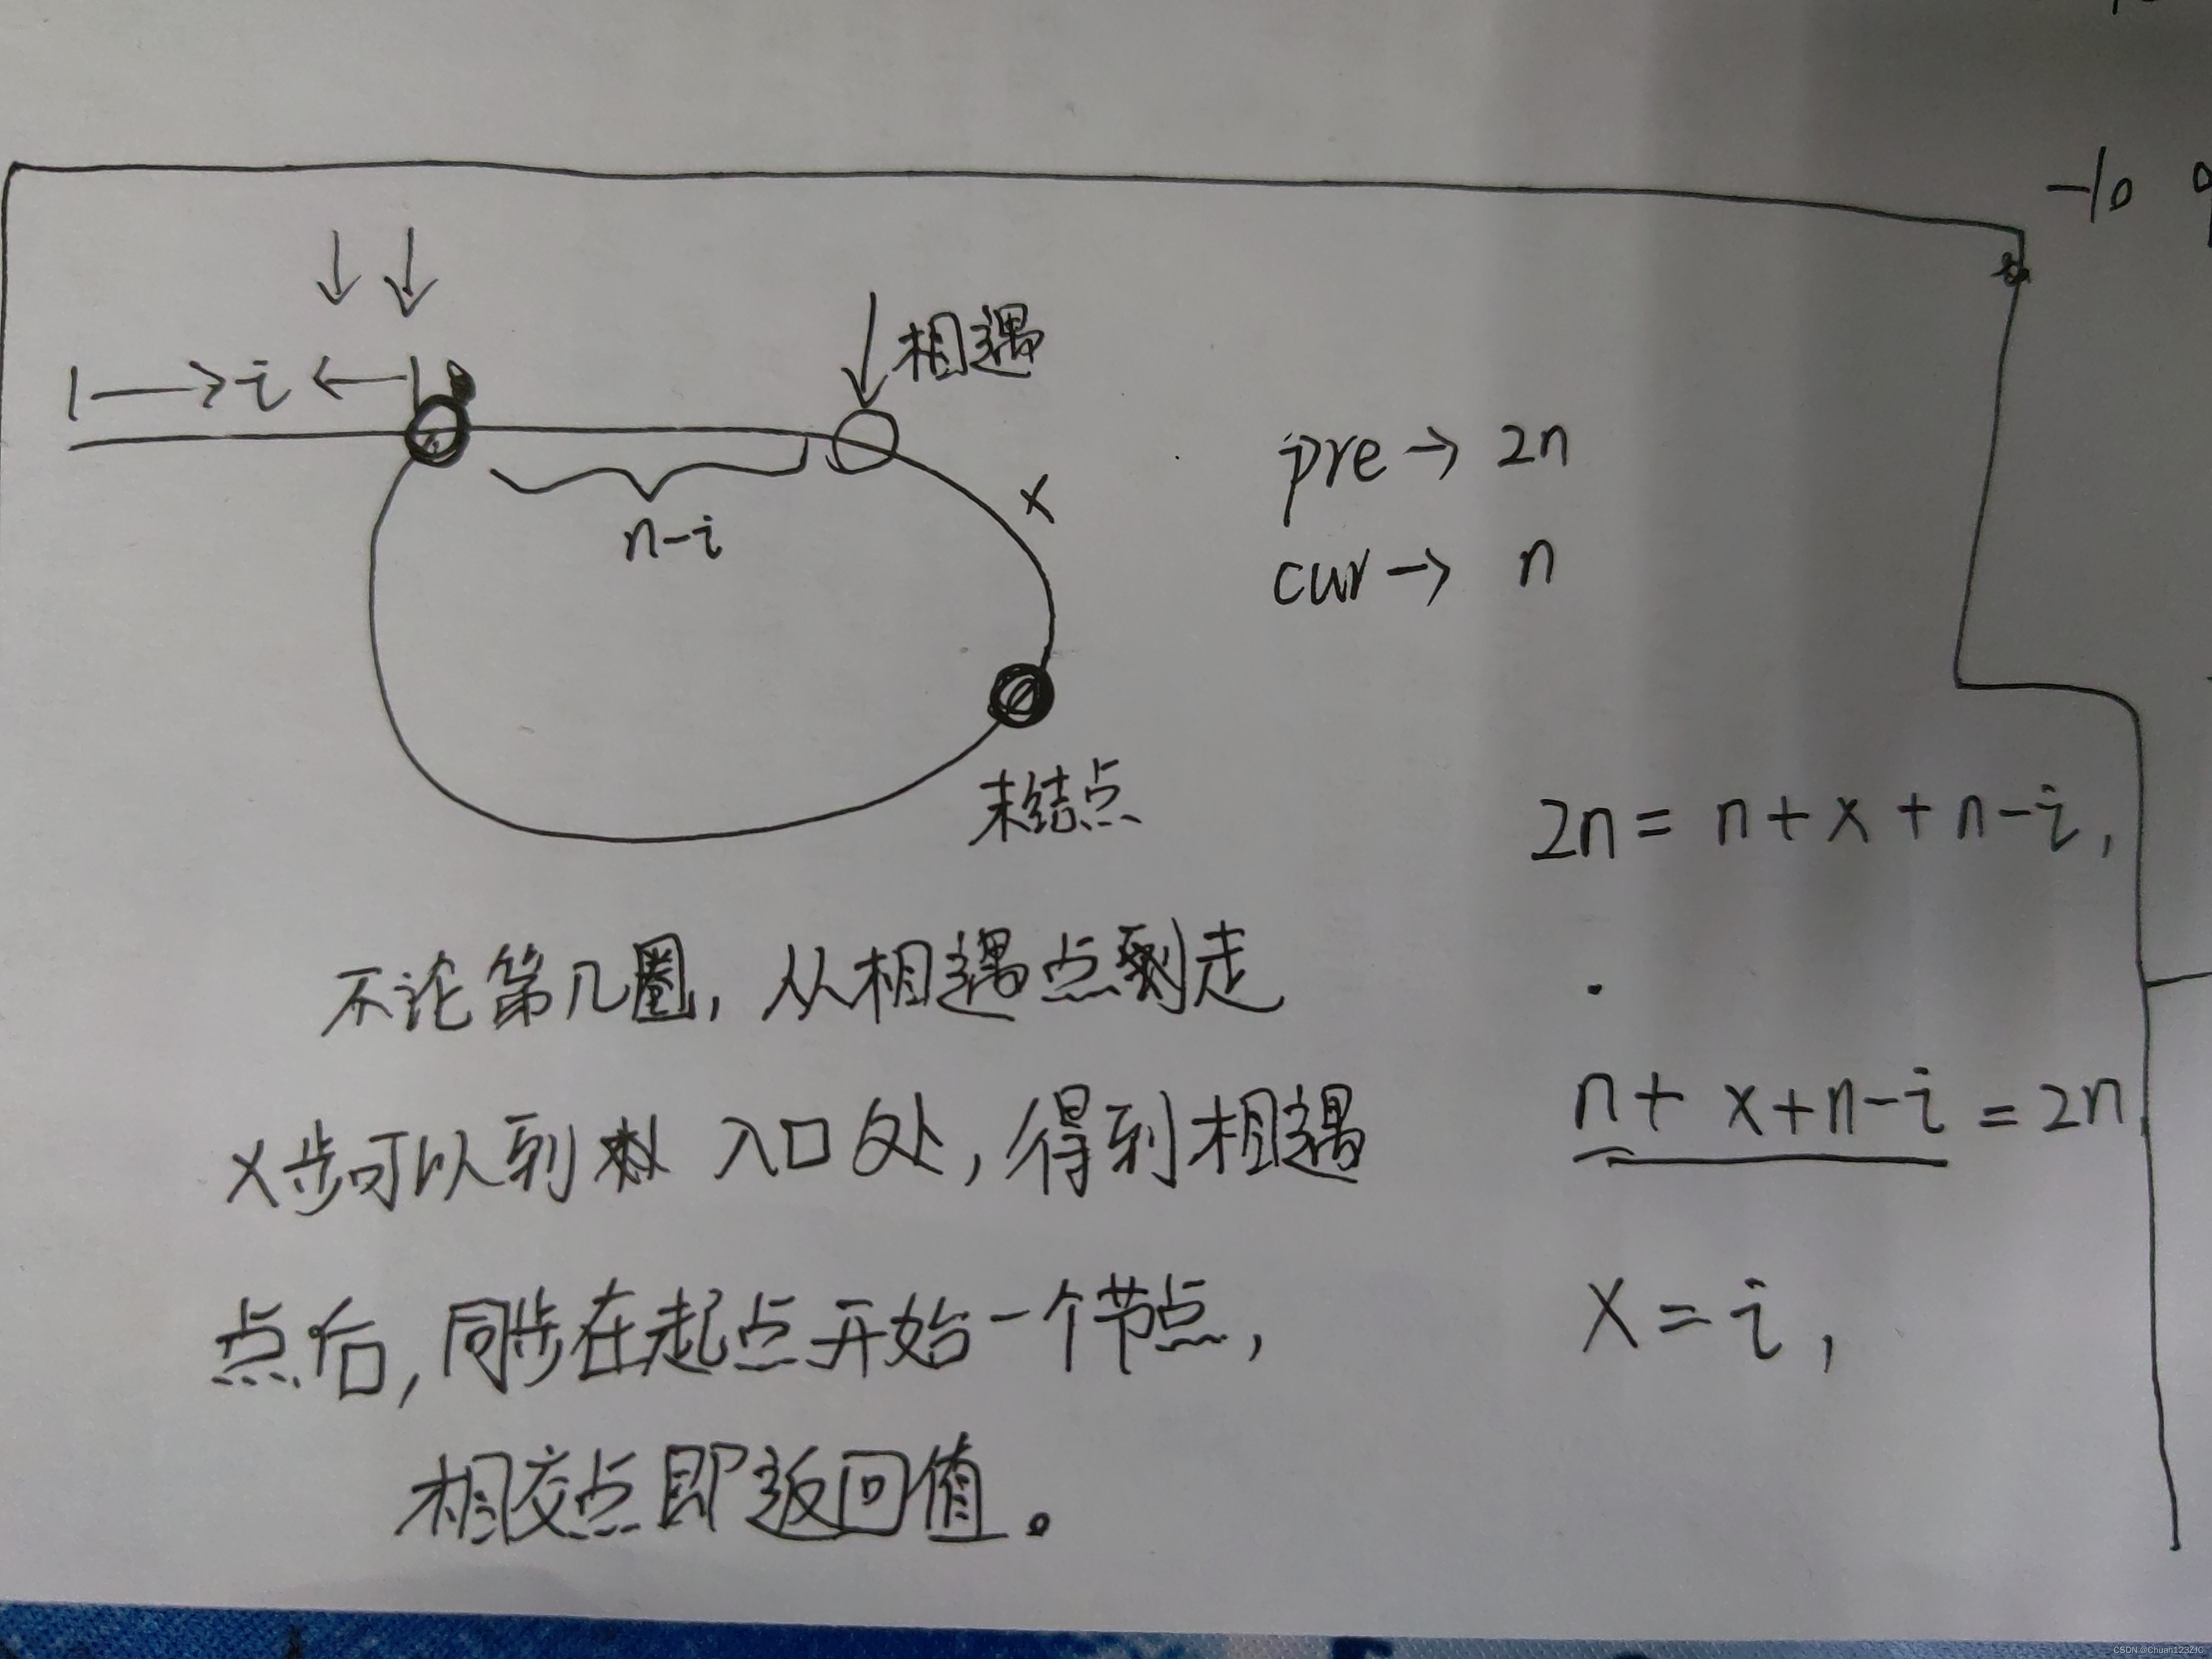 -10
相遇
1→i←
x
n-i
pre→ 2n
cur→ n
末结点
2n = n+x+n-i,
不论第几圈, 从相遇点到走
n+ x+n-i = 2n
x步可以到 入口处, 得到相遇
点后, 同步在起点开始一个节点,
x = i,
相交点即返回值。
CSDN @Chuan123ZJC